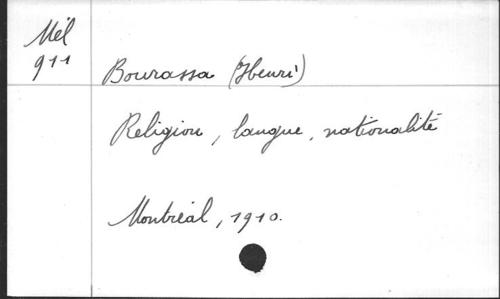 Mél
911
Bourassa (Henri)
Religion, langue, nationalité
Montréal, 1910.